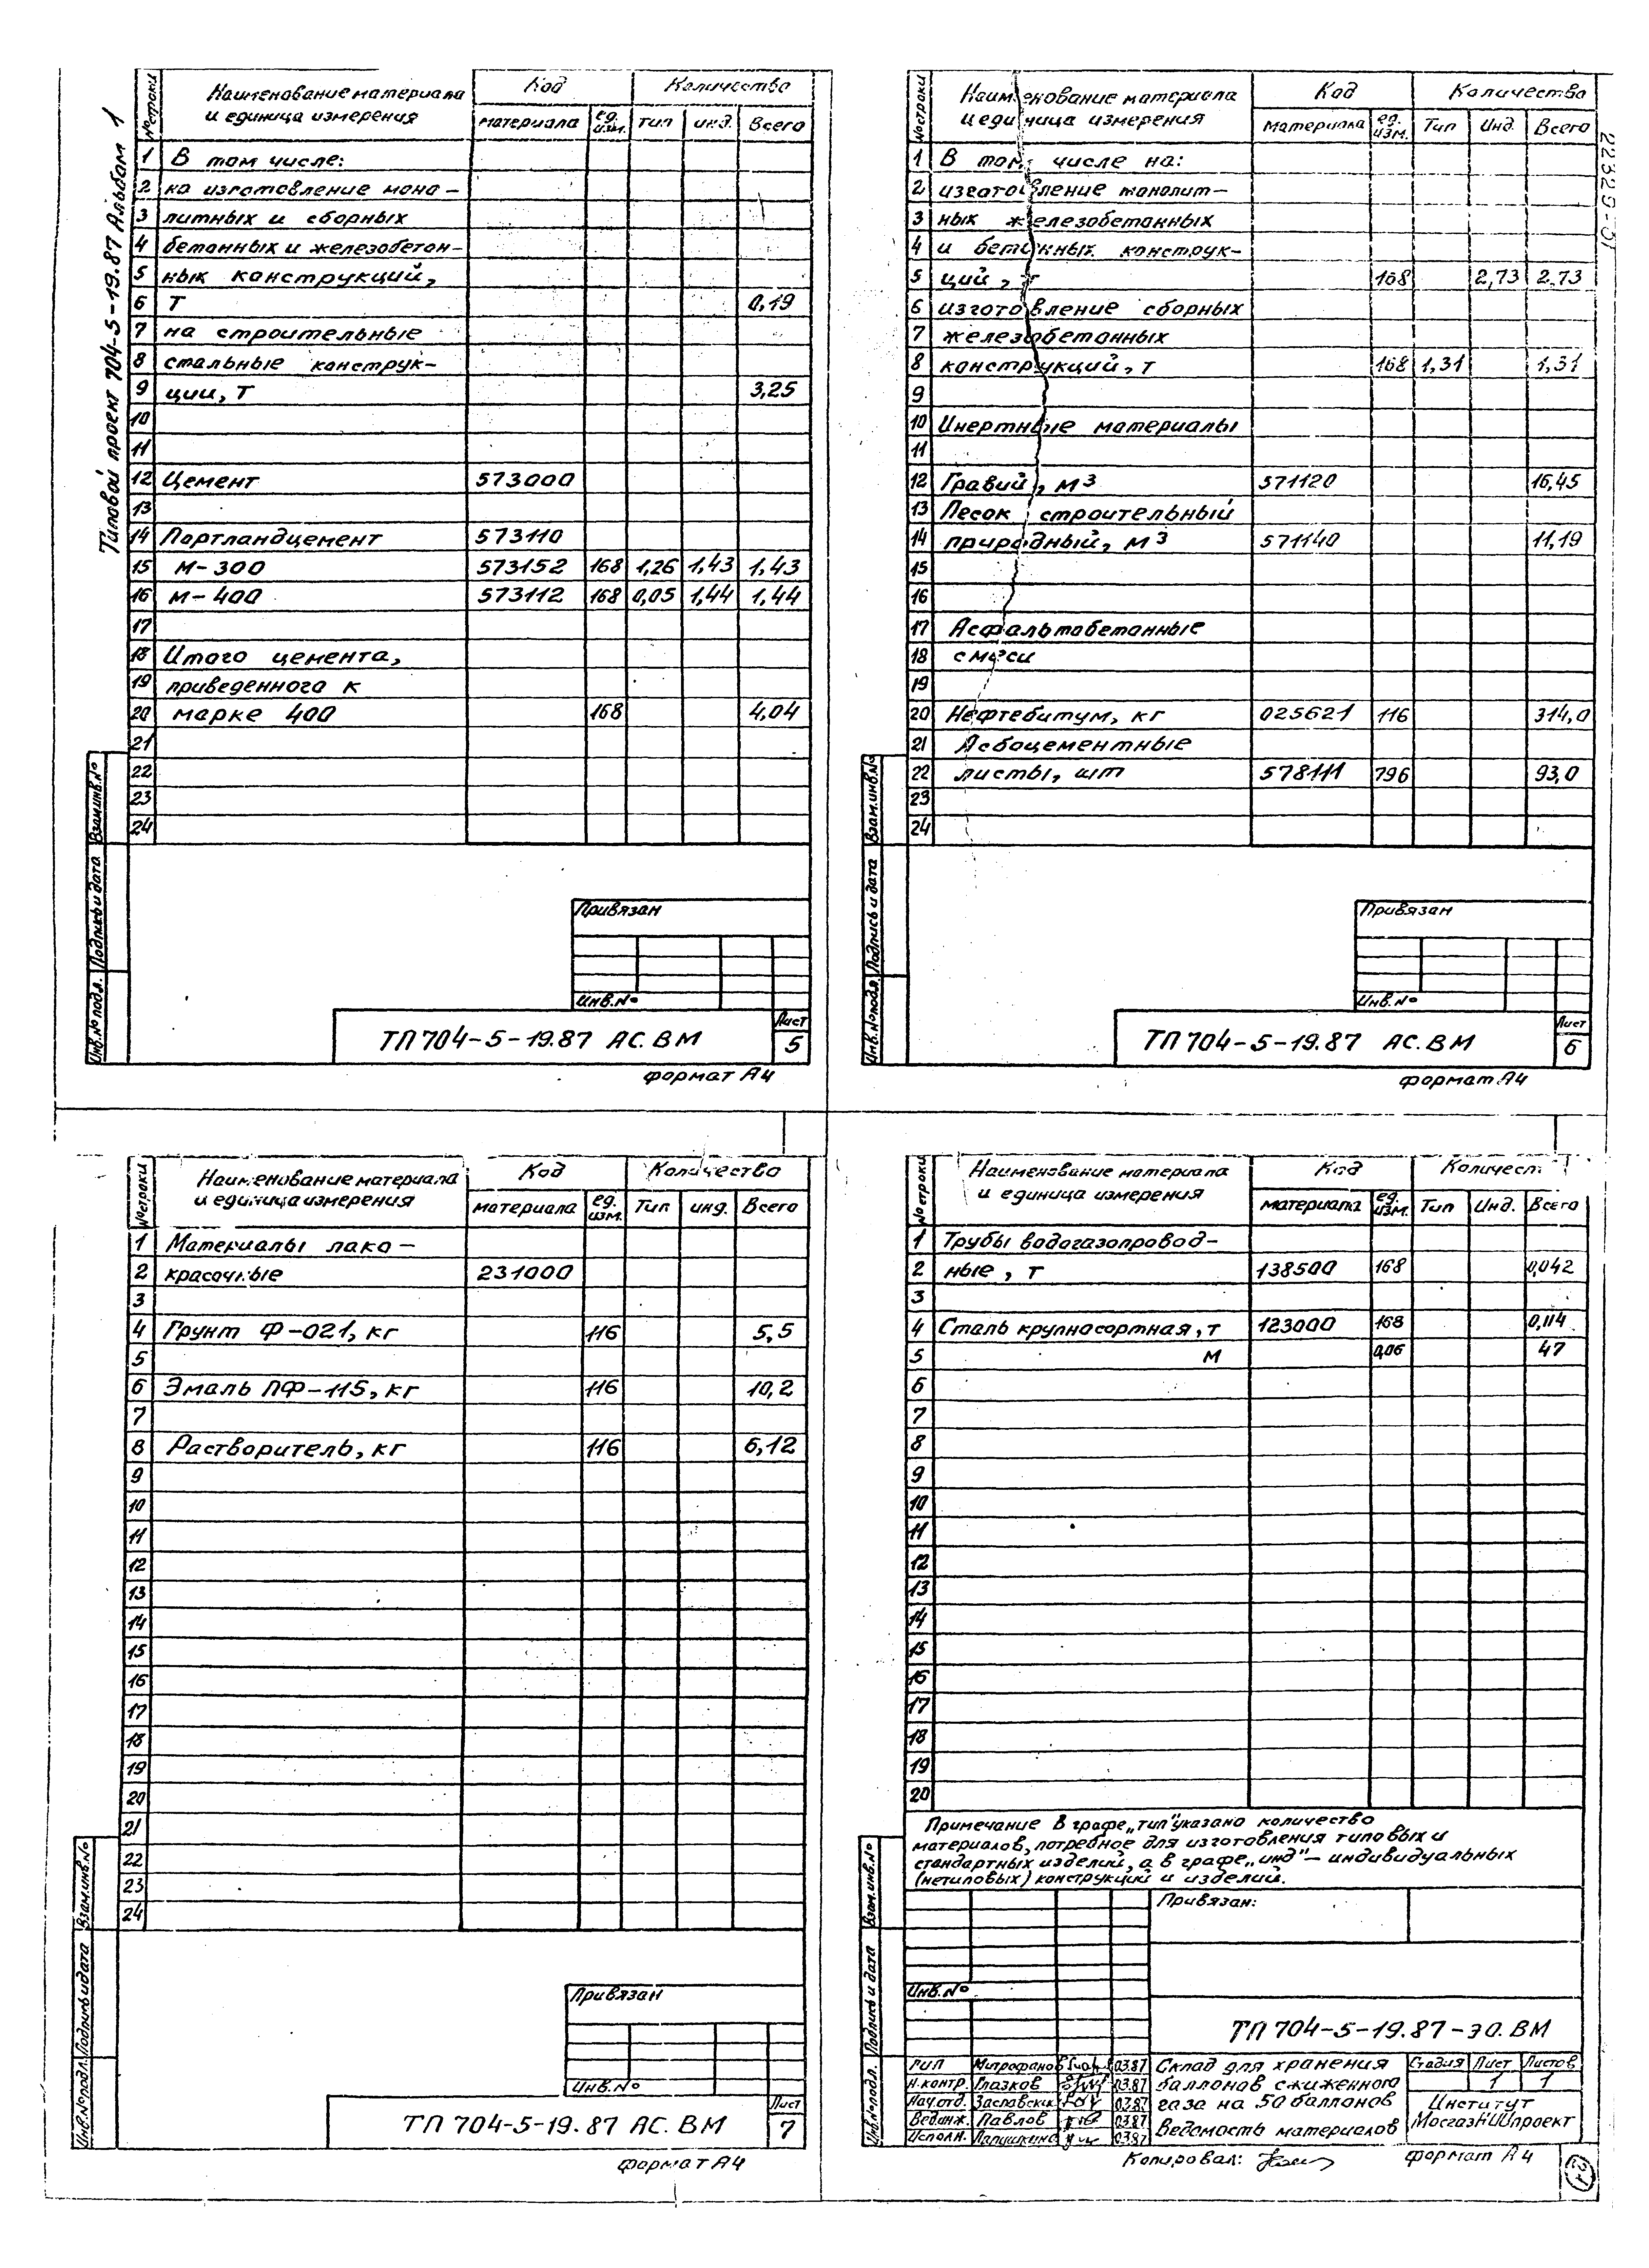 Типовой проект 704-5-19.87 Альбом 1
№ строки Наименование материала и единица измерения Код Количество
материала ед. изм. тип инд. Всего
1 В том числе:
2 на изготовление моно-
3 литных и сборных
4 бетонных и железобетон-
5 ных конструкций,
6 Т 0,19
7 на строительные
8 стальные конструк-
9 ции, Т 3,25
10
11
12 Цемент 573000
13
14 Портландцемент 573110
15 М-300 573152 168 1,26 1,43 1,43
16 М-400 573112 168 0,05 1,44 1,44
17
18 Итого цемента,
19 приведенного к
20 марке 400 168 4,04
21
22
23
24
Инв.№ подл. Подпись и дата Взам.инв.№
Привязан
Инв.№
ТП 704-5-19.87 АС.ВМ
Лист
5
формат А4
№ строки Наименование материала и единица измерения Код Количество
материала ед. изм. Тип Инд. Всего
1 В том числе на:
2 изготовление монолит-
3 ных железобетонных
4 и бетонных конструк-
5 ций, т 168 2,73 2.73
6 изготовление сборных
7 железобетонных
8 конструкций, т 168 1,31 1,31
9
10 Инертные материалы
11
12 Гравий, м3 571120 16,45
13 Песок строительный
14 природный, м3 571140 11,19
15
16
17 Асфальтобетонные
18 смеси
19
20 Нефтебитум, кг 025621 116 314,0
21 Асбоцементные
22 листы, шт 578111 796 93,0
23
24
Инв.№ подл. Подпись и дата Взам.инв.№
Привязан
Инв.№
ТП 704-5-19.87 АС.ВМ
Лист
6
формат А4
№ строки Наименование материала и единица измерения Код Количество
материала ед. изм. Тип инд. Всего
1 Материалы лако-
2 красочные 231000
3
4 Грунт Ф-021, кг 116 5,5
5
6 Эмаль ПФ-115, кг 116 10,2
7
8 Растворитель, кг 116 6,12
9
10
11
12
13
14
15
16
17
18
19
20
21
22
23
24
Инв.№ подл. Подпись и дата Взам.инв.№
Привязан
Инв.№
ТП 704-5-19.87 АС.ВМ
Лист
7
формат А4
№ строки Наименование материала и единица измерения Код Количест
материала ед. изм. Тип Инд. Всего
1 Трубы водогазопровод-
2 ные, т 138500 168 0,042
3
4 Сталь крупносортная, т 123000 168 0,114
5 м 006 47
6
7
8
9
10
11
12
13
14
15
16
17
18
19
20
Примечание В графе „тип" указано количество
материалов, потребное для изготовления типовых и
стандартных изделий, а в графе „инд"- индивидуальных
(нетиповых) конструкций и изделий.
Инв.№ подл. Подпись и дата Взам.инв.№
Привязан:
Инв.№
ТП 704-5-19.87-ЭО.ВМ
ГИП Митрофанов 03.87
Н.контр. Глазков 03.87
Нач.отд. Заславский 03.87
Вед.инж. Павлов 03.87
Исполн. Лапушкина 03.87
Склад для хранения
баллонов сжиженного
газа на 50 баллонов
Ведомость материалов
Стадия Лист Листов
1 1
Институт
МосгазНИИпроект
Копировал:
формат А4